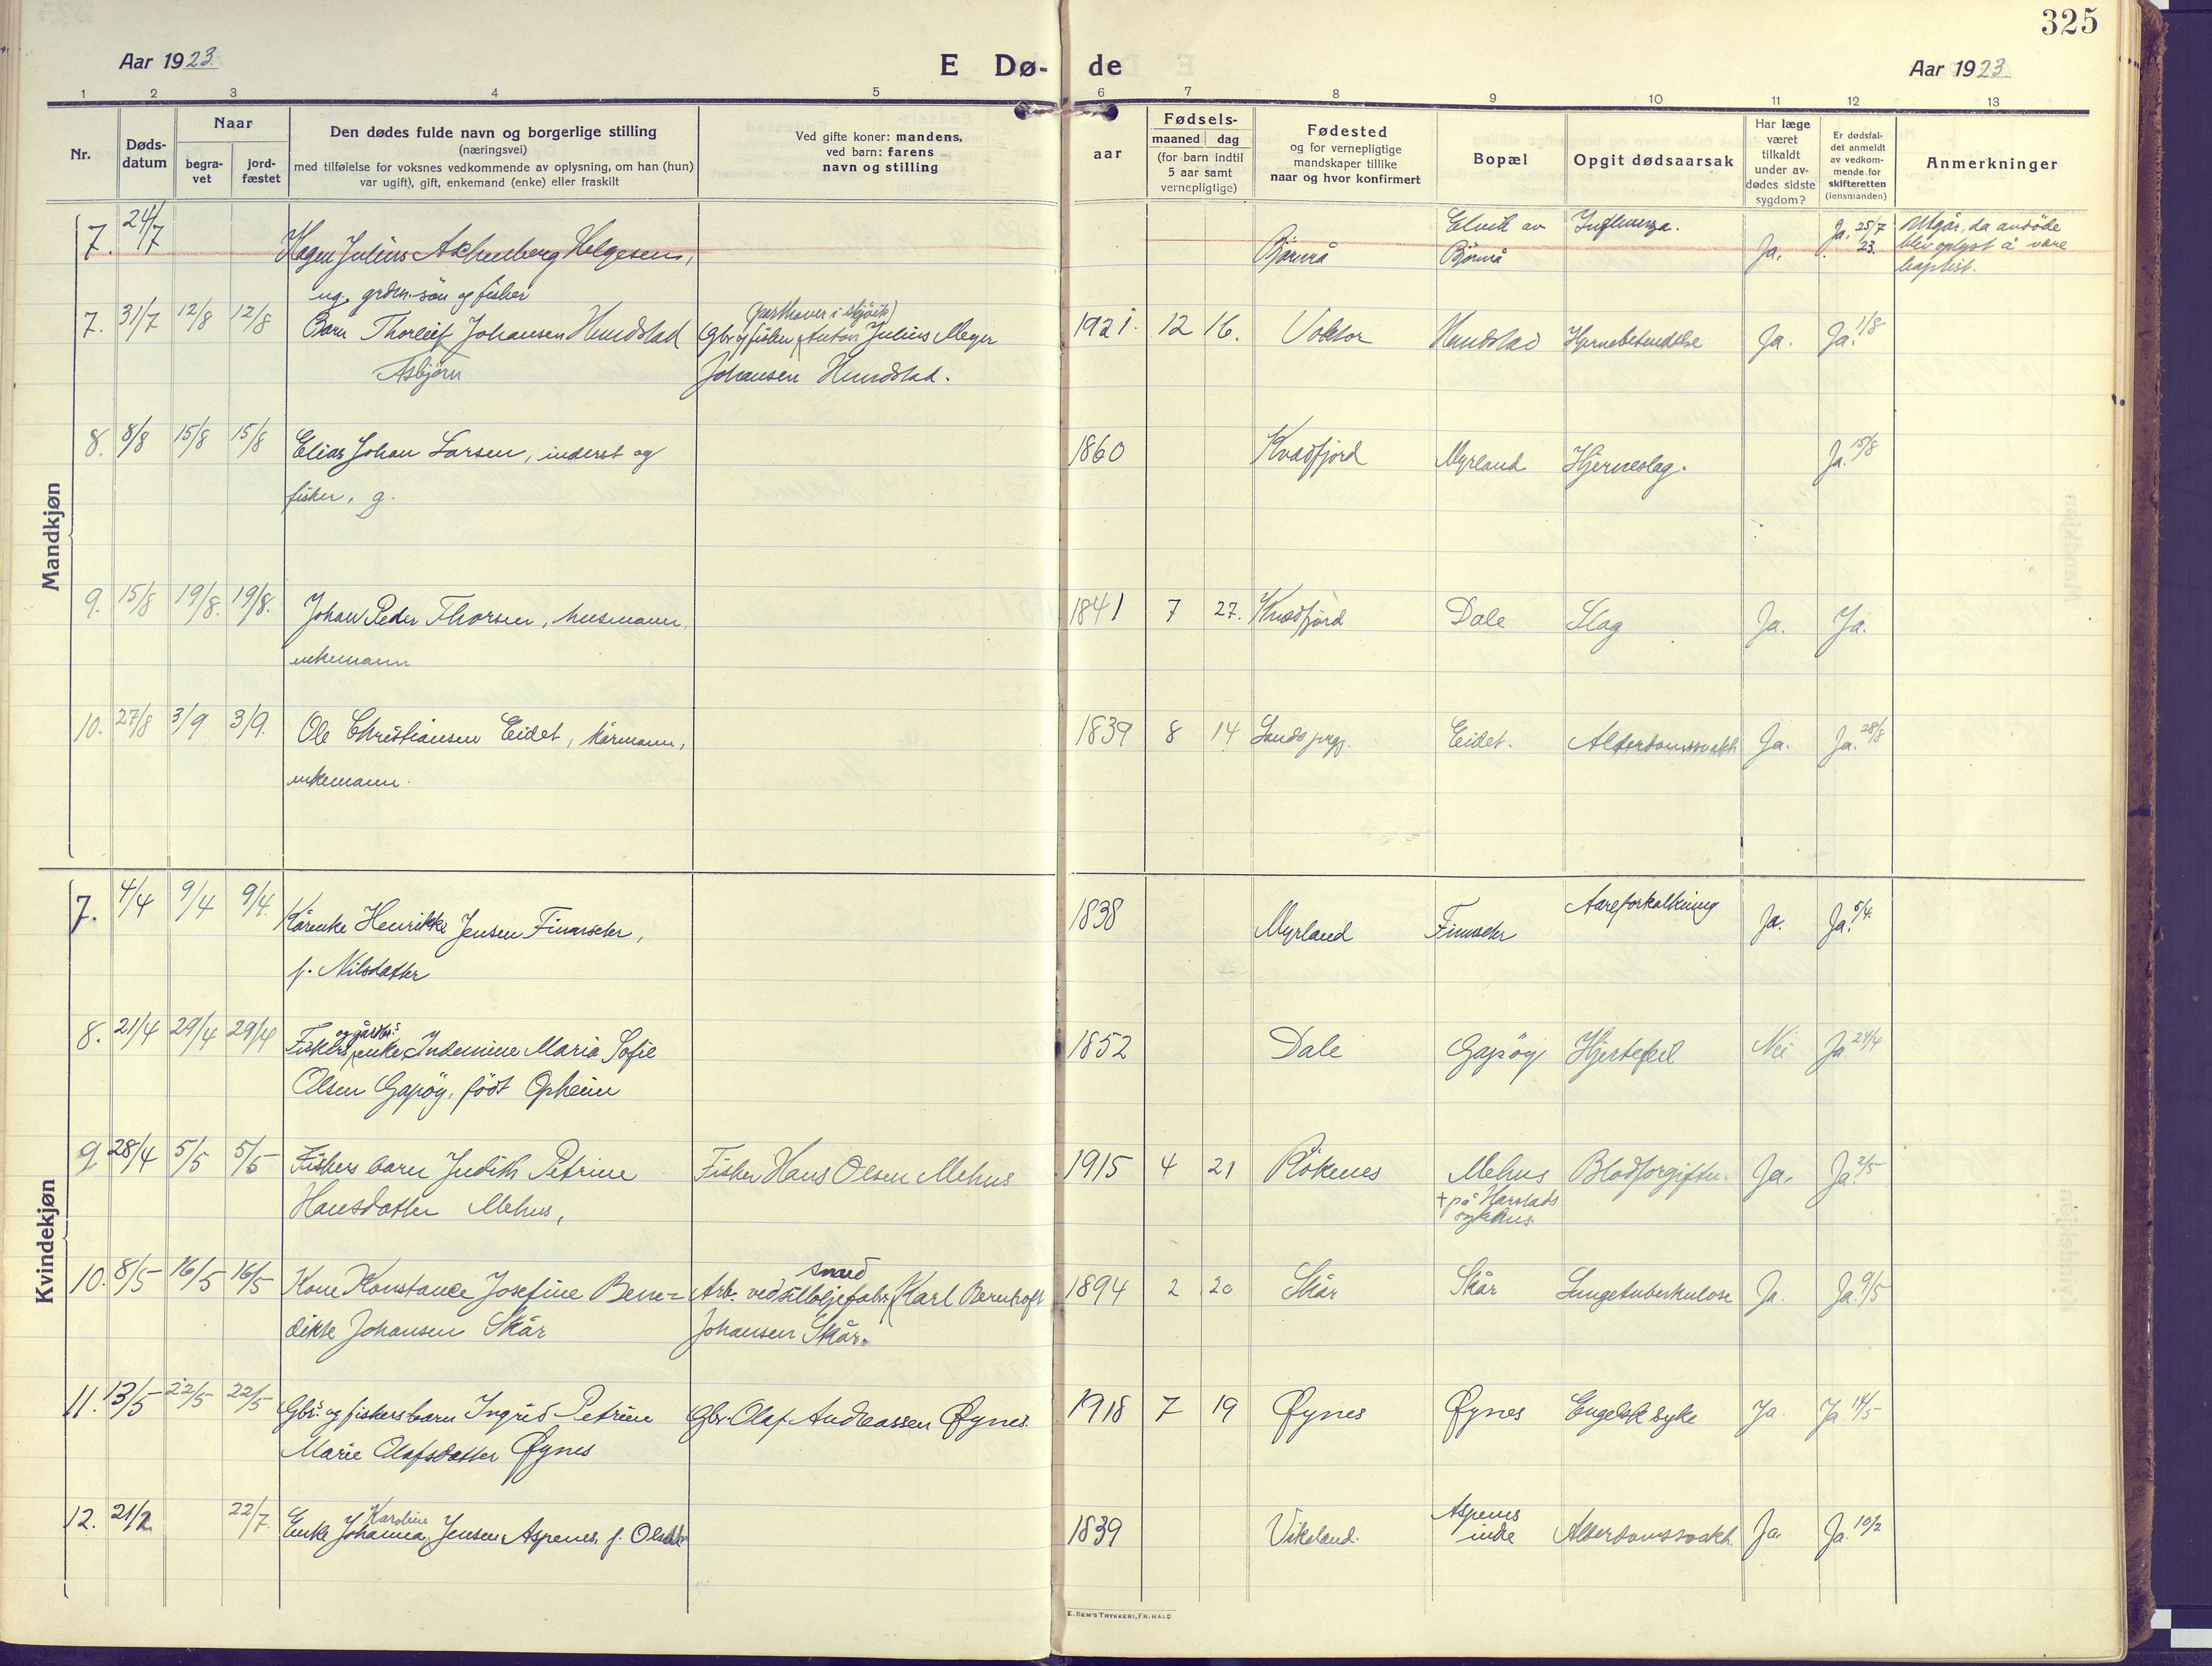 325
Aar 1923.
E Dø- de
Aar 1923.
1 2 3 4 5 6 7 8 9 10 11 12 13
Nr.
Døds-
datum
Naar
begra-
vet
jord-
fæstet
Den dødes fulde navn og borgerlige stilling
(næringsvei)
med tilføielse for voksnes vedkommende av oplysning, om han (hun)
var ugift), gift, enkemand (enke) eller fraskilt
Ved gifte koner: mandens,
ved barn: farens
navn og stilling
aar
Fødsels-
maaned dag
(for barn indtil
5 aar samt
vernepligtige)
Fødested
og for vernepligtige
mandskaper tillike
naar og hvor konfirmert
Bopæl
Opgit dødsaarsak
Har læge
været
tilkaldt
under av-
dødes sidste
sygdom?
Er dødsfal-
det anmeldt
av vedkom-
mende for
skifteretten
(lensmanden)
Anmerkninger
Mandkjøn
7. 24/7 Hagen Julius Helgesen, Bjørnrå Elvik av Bjørnrå Influenza. Ja. Ja. 25/7 23. Utgår, da avdöde
blev oplyst å være
baptist.
ug. grdm. sön og fisker
7. 31/7 12/8 12/8 Barn Thorleif Johansen Hundstad
Asbjørn
Gbr og fisker Anton Julius Meyer
Johansen Hundstad.
1921. 12 16. Voktor Hundstad Hjernebetendelse Ja. Ja. 1/8
8. 8/8 15/8 15/8 Elias Johan Larsen, inderst og
fisker, g.
1860 Kvædfjord Myrland Hjerneslag. Ja. 15/8
9. 15/8 19/8. 19/8. Johan Peder Thorsen, husmann,
enkemann
1841 7 27. Kvædfjord Dale Slag Ja. Ja.
10. 27/8 3/9 3/9. Ole Christiansen Eidet, kårmann,
enkemann.
1839 8 14 Sands prgj. Eidet. Alderdomssvakh. Ja. Ja. 28/8
Kvindekjøn
7. 4/4 9/4 9/4. Kårenke Henrikke Jensen Finnsæter,
f. Nilsdatter
1838 Myrland Finnsæter Aareforkalkning Ja. Ja. 5/4.
8. 21/4 29/4 29/4 Fiskers og gårdbr.s enke, Indemine Maria Sofie
Olsen Gapöy, född Opheim
1852 Dale Gapöy Hjertefeil Nei Ja 24/4
9. 28/4 5/5 5/5 Fiskers barn Judith Petrine
Hansdatter Mehus,
Fisker Hans Olsen Mehus
1915 4 21 Rökenes Mehus Blodforgiftn. Ja. Ja 2/5
+ på Harstads
sykehus
10. 8/5 16/5 16/5 Kone Konstance Josefine Bene=
dikte Johansen Skår
Arb. ved sildoljefabr. Karl Bernhoft
Johansen Skår.
1894 2 20 Skår Skår Lungetuberkulose Ja. Ja. 9/5
11. 13/5 22/5 22/5 Gbr.s og fiskers barn Ingrid Petrine
Marie Olafsdatter Øynes
Gbr. Olaf Andreassen Øynes.
1918 7 19 Øynes Øynes Engelsk syke Ja. Ja. 14/5
12. 21/2 22/7. Enke Johanna Karoline Jensen Aspenes, f. Olsdatter
1839 Vikeland. Aspenes
indre
Alderdomssvakh. Ja. Ja. 10/2
E. SEM'S TRYKKERI, FR.HALD